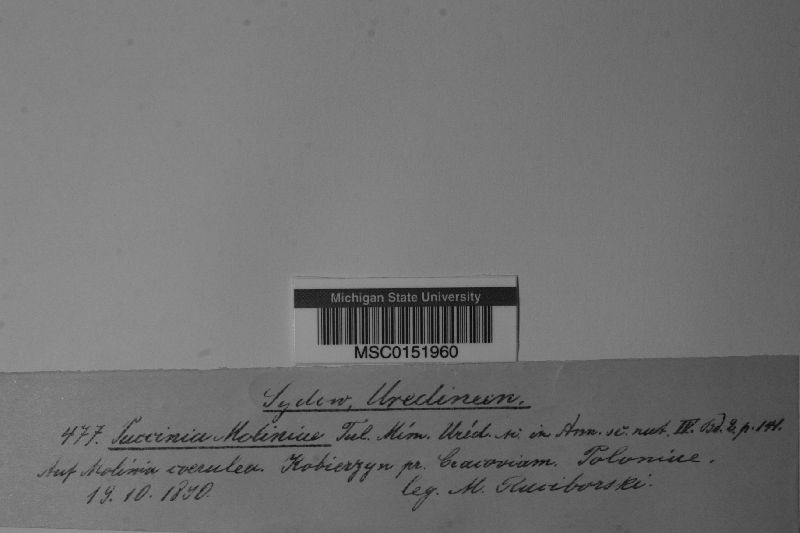 Michigan State University
MSC0151960
Sydow, Uredineen.
477. Puccinia Moliniae Tul. Mém. Uréd. in Ann. sc. nat. IV. Bd. 2. p. 141.
Auf Molinia coerulea. Kobierzyn pr. Cracoviam. Poloniae.
19. 10. 1890. leg. M. Raciborski.